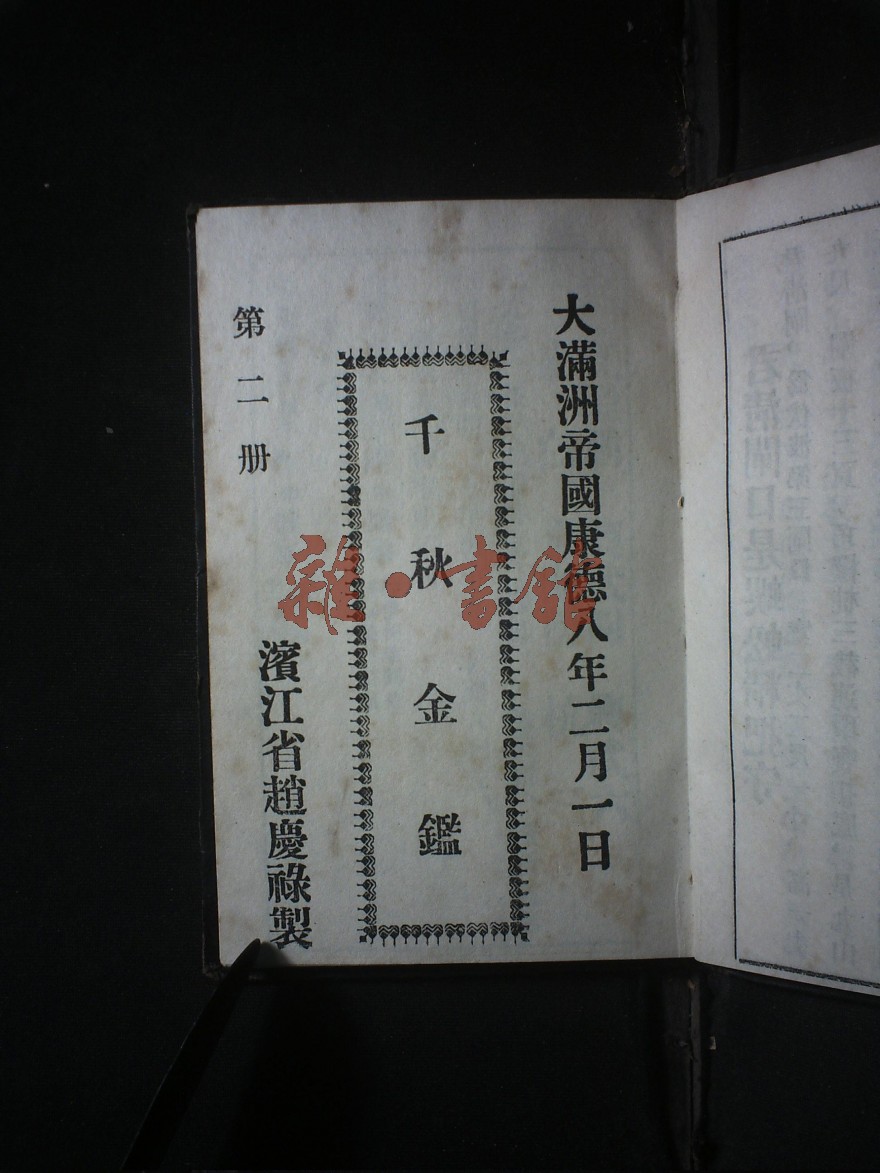 大滿洲帝國康德八年二月一日
千秋金鑑
第二册
濱江省趙慶祿製
雜·書館